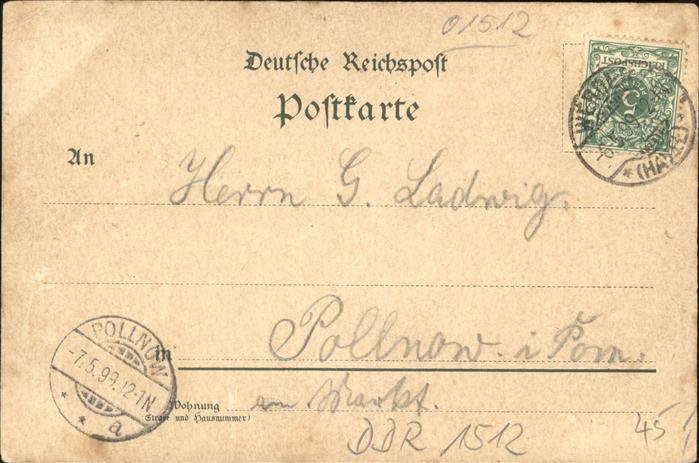 01512
Deutsche Reichspost
Postkarte
REICHSPOST
5
(HARZ)
An
Herrn G. Ladwig.
in Pollnow i Pom.
POLLNOW
-7.5.99.12-1N
a
Wohnung am Markt.
(Straße und Hausnummer)
DDR 1512
45